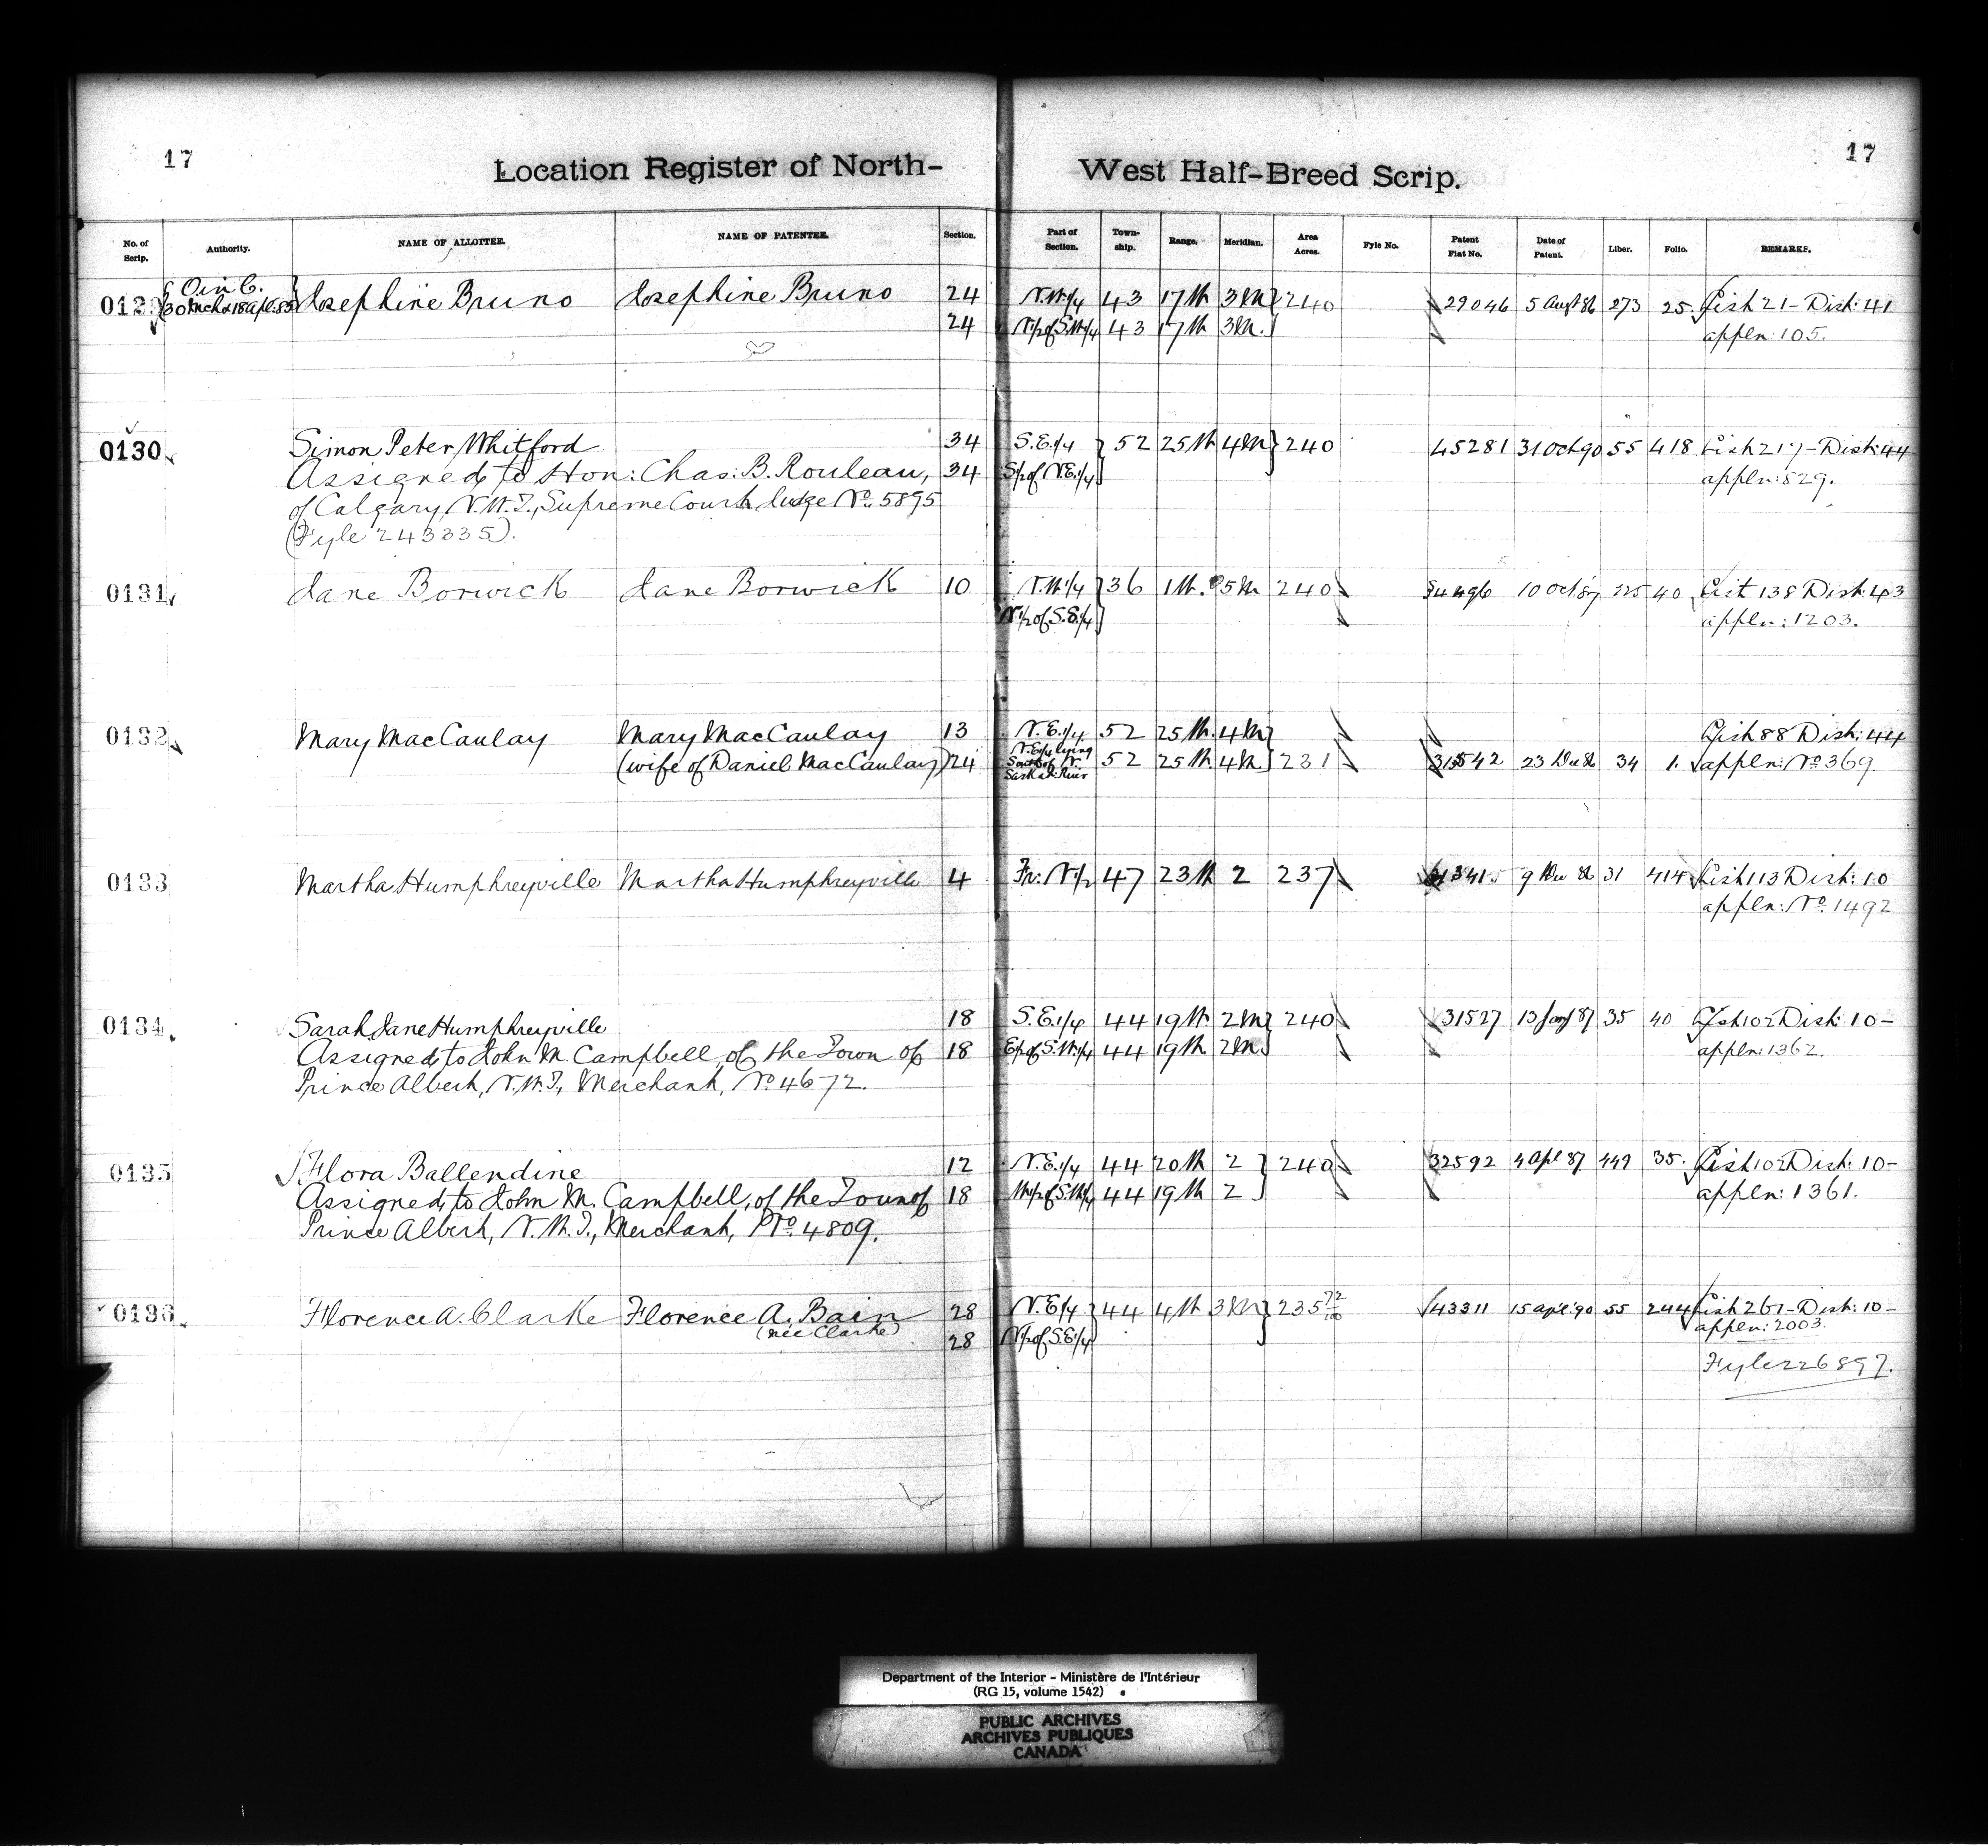 17
17
Location Register of North-West Half-Breed Scrip.
No. of Scrip. Authority. NAME OF ALLOTTEE. NAME OF PATENTEE. Section. Part of Section. Town-ship. Range. Meridian. Area Acres. Fyle No. Patent Fiat No. Date of Patent. Liber. Folio. REMARKS.
O in C.
0129 30 Mch & 18 Apl: 85 Josephine Bruno Josephine Bruno 24 N.W.1/4 43 17 W 3 M 240 29046 5 Augt 86 273 25 List 21 - Dist: 41
24 N1/2 of S.W.1/4 43 17 W 3 M. appln: 105.
0130 Simon Peter Whitford 34 S.E.1/4 52 25 W 4 M 240 45281 31 Oct 90 55 418 List 217 - Dist: 44
Assigned to Hon: Chas: B. Rouleau, 34 S1/2 of N.E.1/4 appln: 829.
of Calgary, N.W.T., Supreme Court Judge No. 5895
(Fyle 243335).
0131 Jane Borwick Jane Borwick 10 N.W.1/4 36 1 W. 5 M 240 10 Oct 87 40 List 138 Dist: 43
N1/2 of S.E.1/4 appln: 1203.
0132 Mary MacCaulay Mary MacCaulay 13 N.E.1/4 52 25 W. 4 M List 88 Dist: 44
(wife of Daniel MacCaulay) 24 N.E1/4 lying South of N. Sask at: River 52 25 W 4 M 231 31542 23 Dec 86 34 1. appln: No 369.
0133 Martha Humphreyville Martha Humphreyville 4 Fr: N1/2 47 23 W 2 237 9 Dec 86 31 414 List 113 Dist: 10
appln: No. 1492
0134 Sarah Jane Humphreyville 18 S.E.1/4 44 19 W. 2 M 240 31527 13 Jany 87 35 40 List 102 Dist: 10-
Assigned to John M. Campbell, of the Town of 18 E1/2 of S.W.1/4 44 19 W 2 M. appln: 1362.
Prince Albert, N.W.T., Merchant, No. 4672.
0135 Flora Ballendine 12 N.E.1/4 44 20 W 2 240 32592 4 Apl 87 449 35. List 102 Dist: 10-
Assigned to John M. Campbell, of the Town of 18 W1/2 of S.W1/4 44 19 W 2 appln: 1361.
Prince Albert, N.W.T., Merchant, No. 4809.
0136 Florence A. Clarke Florence A. Bain 28 N.E1/4 44 4 W 3 M 235 72/100 43311 15 Apl: 90 55 244 List 261 - Dist: 10-
(née Clarke) 28 N1/2 of S.E.1/4 appln: 2003.
Fyle 226897.
Department of the Interior - Ministère de l'Intérieur
(RG 15, volume 1542)
PUBLIC ARCHIVES
ARCHIVES PUBLIQUES
CANADA